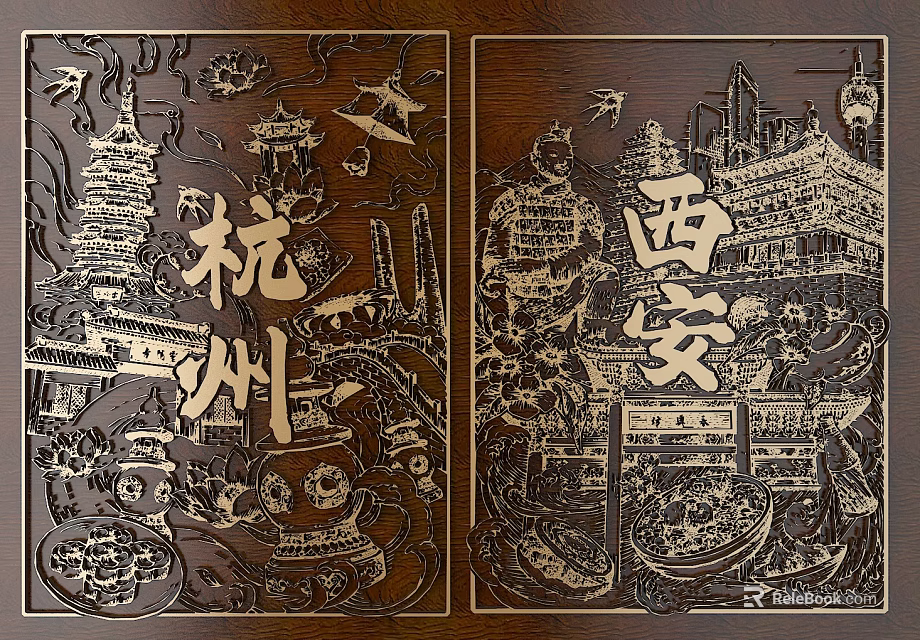 杭州
西安
永興坊
ReleBook.com